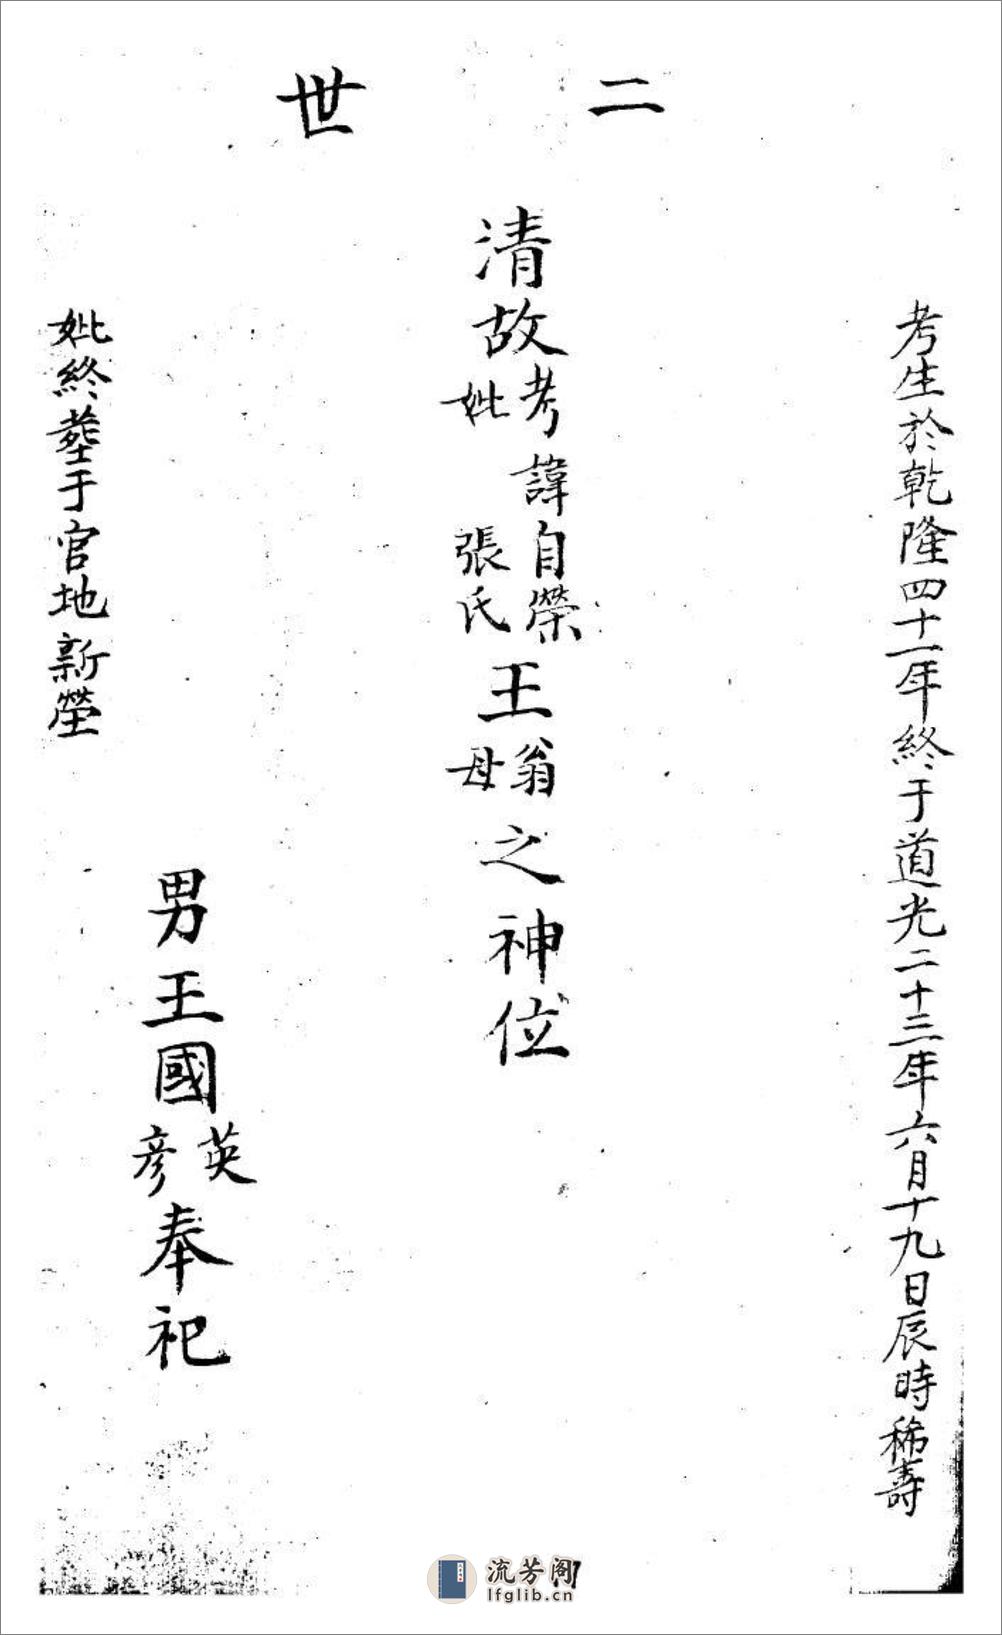 二世
考生於乾隆四十一年終于道光二十三年六月十九日辰時稀壽
清故考妣諱自榮張氏王翁母之神位
男王國英彦奉祀
妣終塟于官地新塋
流芳阁
lfglib.cn